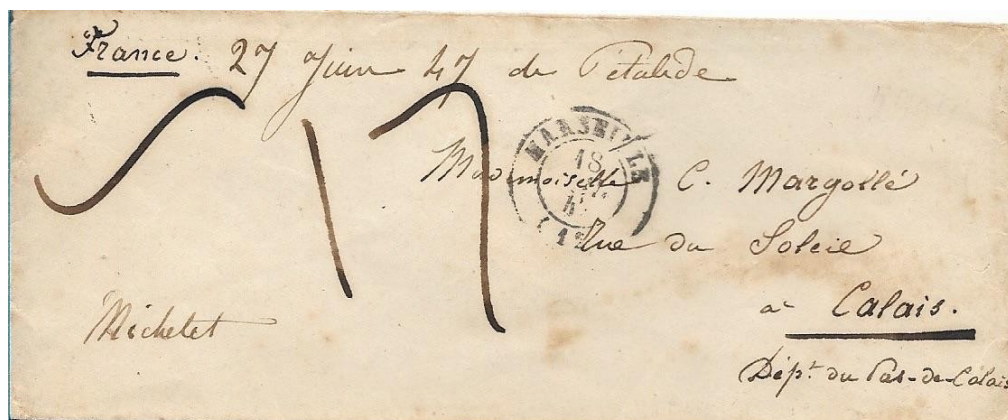 France. 27 Juin 47 de Pétalide
17
MARSEILLE
18
Mademoiselle C. Margollé
Rue du Soleil
à Calais.
Michelet
Dépt. du Pas-de-Calais